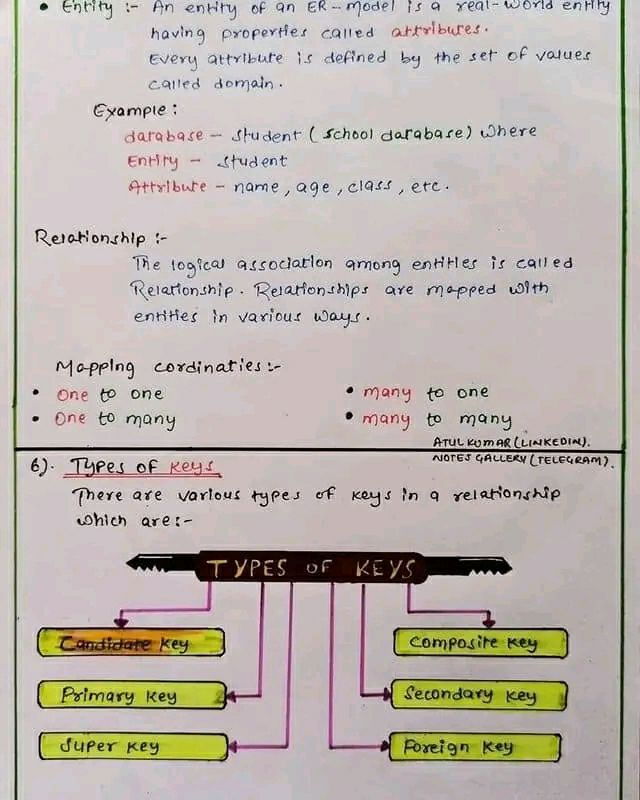 • Entity :- An entity of an ER-model is a real-world entity
having properties called attributes.
Every attribute is defined by the set of values
called domain.
Example :
database - student ( school database) where
Entity - student
Attribute - name, age, class, etc.
Relationship :-
The logical association among entities is called
Relationship. Relationships are mapped with
entities in various ways.
Mapping cordinaties :-
• One to one
• many to one
• One to many
• many to many
ATUL KUMAR (LINKEDIN).
NOTES GALLERY (TELEGRAM).
6). Types of keys
There are various types of keys in a relationship
which are :-
TYPES OF KEYS
Candidate key
Composite key
Primary key
Secondary key
Super key
Foreign key